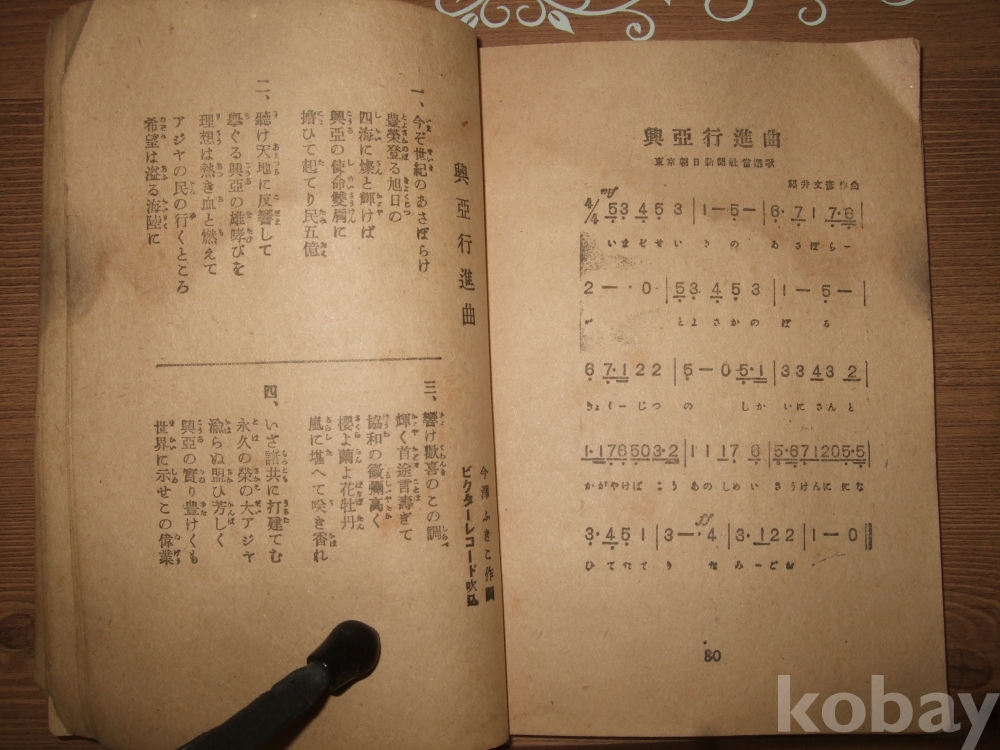 興亞行進曲
今澤ふきこ作詞
ビクターレコード吹込
一、今ぞ世紀のあさぼらけ
豊榮登る旭日の
四海に燦と輝けば
興亞の使命雙肩に
擔ひて起てり民五億
二、聽け天地に反響して
擧ぐる興亞の雄哮びを
理想は熱き血と燃えて
アジヤの民の行くところ
希望は溢る海陸に
三、響け歡喜のこの調
輝く首途言壽ぎて
協和の徽彌高く
櫻よ繭よ花牡丹
嵐に堪へて咲き香れ
四、いざ諸共に打建てむ
永久の榮の大アジヤ
渝らぬ盟ひ芳しく
興亞の實り豊けくも
世界に示せこの偉業
興亞行進曲
東京朝日新聞社當選歌
福井文彦作曲
4/4 53 45 3 | 1 — 5 — | 6· 7 1 7·6 |
いまぞせいきの あさぼらー
2 — · 0 | 53 45 3 | 1 — 5 — |
け とよさかの ぼる
6 7·1 2 2 | 5 — 0 5·1 | 3 3 43 2 |
きょくーじつ の しか いにさんと
1·1 76 50 3·2 | 1 1 17 6 | 5·67 1205·5 |
かがやけば こう あのしめい さうけんににな
3· 45 1 | 3 — · 4 | 3· 12 2 | 1 — 0 ||
ひてたてり たみーごお
80
kobay